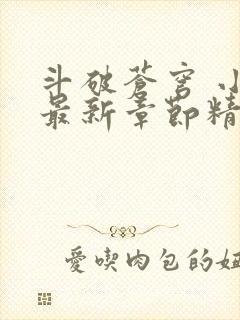 斗破蒼穹 小
最新章節精
愛喫肉包的妞